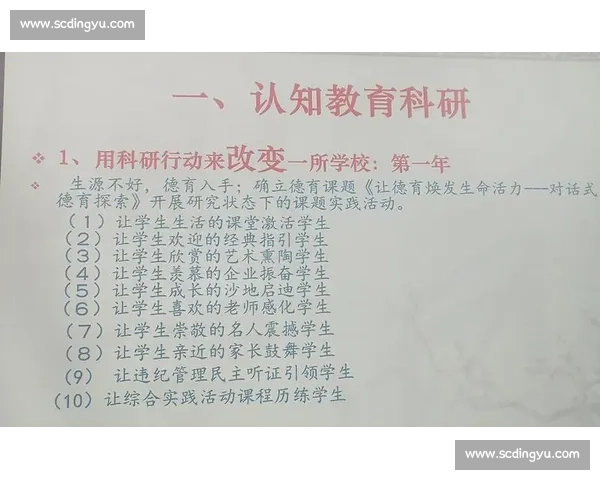 www.scdingyu.com
一、认知教育科研
❖ 1、用科研行动来改变一所学校：第一年
❖ 生源不好，德育入手；确立德育课题《让德育焕发生命活力——对话式
德育探索》开展研究状态下的课题实践活动。
（1）让学生生活的课堂激活学生
（2）让学生欢迎的经典指引学生
（3）让学生欣赏的艺术熏陶学生
（4）让学生羡慕的企业振奋学生
（5）让学生成长的沙地启迪学生
（6）让学生喜欢的老师感化学生
（7）让学生崇敬的名人震撼学生
（8）让学生亲近的家长鼓舞学生
（9） 让违纪管理民主听证引领学生
（10）让综合实践活动课程历练学生
www.scdingyu.com